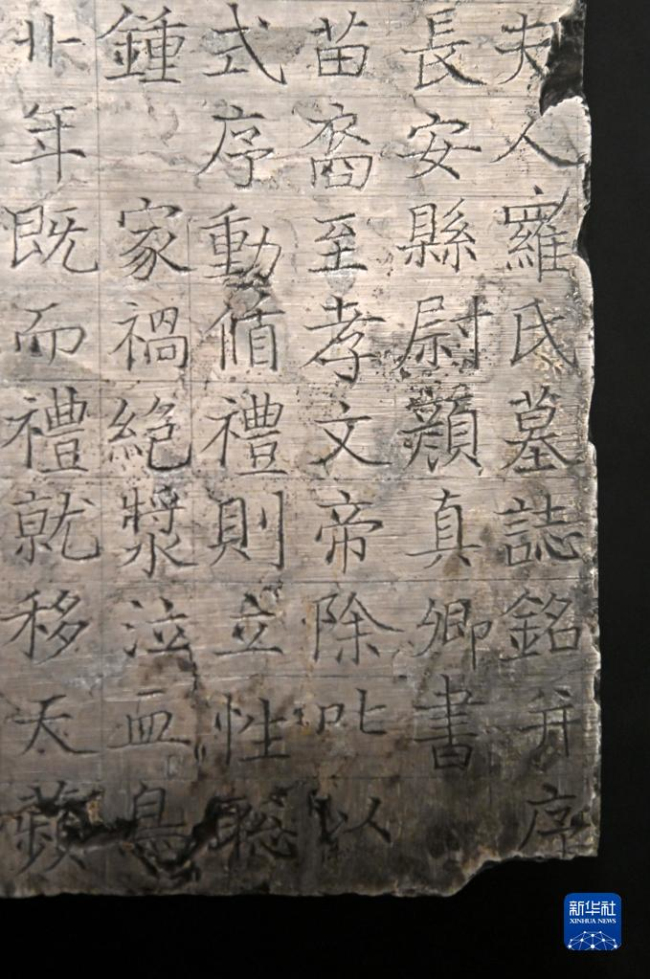 夫人羅氏墓誌銘并序
長安縣尉顏真卿書
苗裔至孝文帝除叱以
式序動循禮則立性聡
鍾家禍絕漿泣血
年既而禮就移天蘋
新华社
XINHUA NEWS